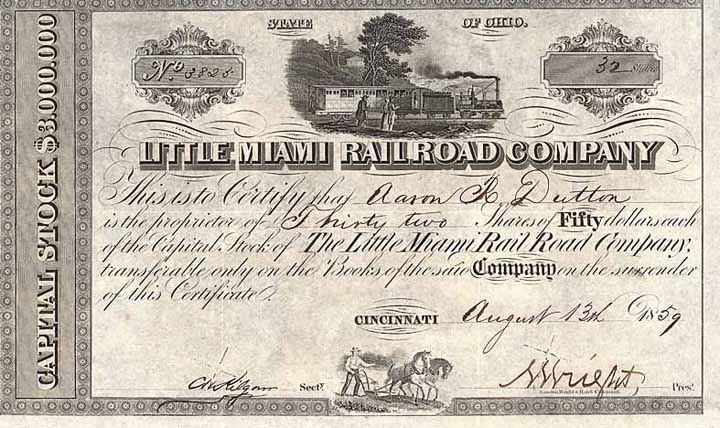 CAPITAL STOCK $3,000,000
STATE OF OHIO.
No 3825
32 Shares
LITTLE MIAMI RAILROAD COMPANY
This is to Certify that Aaron R. Dutton
is the proprietor of Thirty two Shares of Fifty dollars each
of the Capital Stock of The Little Miami Rail Road Company,
transferable only on the Books of the said Company on the surrender
of this Certificate.
CINCINNATI August 13th 1859
Secty.
Wright, Prest.